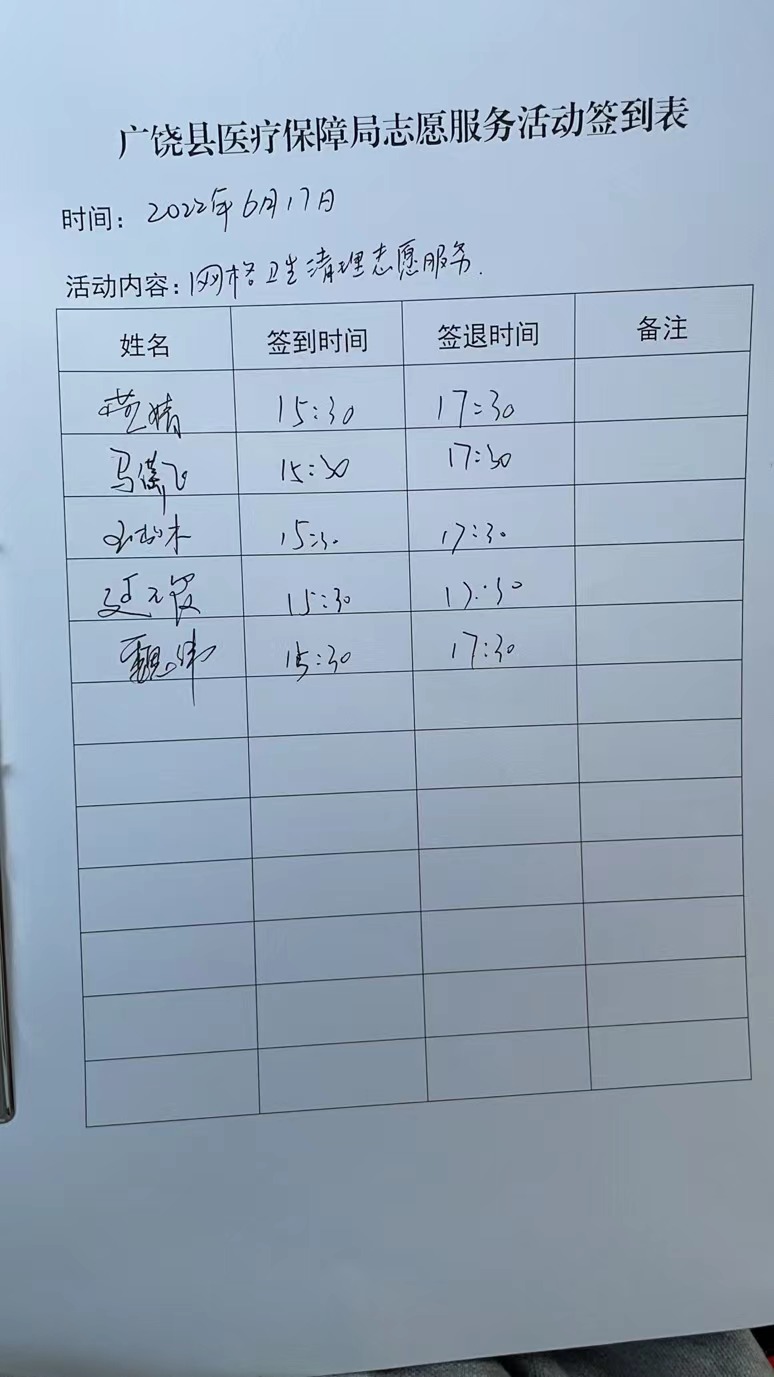 广饶县医疗保障局志愿服务活动签到表
时间：2022年6月17日
活动内容：网格卫生清理志愿服务.
姓名 签到时间 签退时间 备注
婧 15:30 17:30
马 飞 15:30 17:30
15:30 17:30
15:30 17:30
魏 伟 15:30 17:30